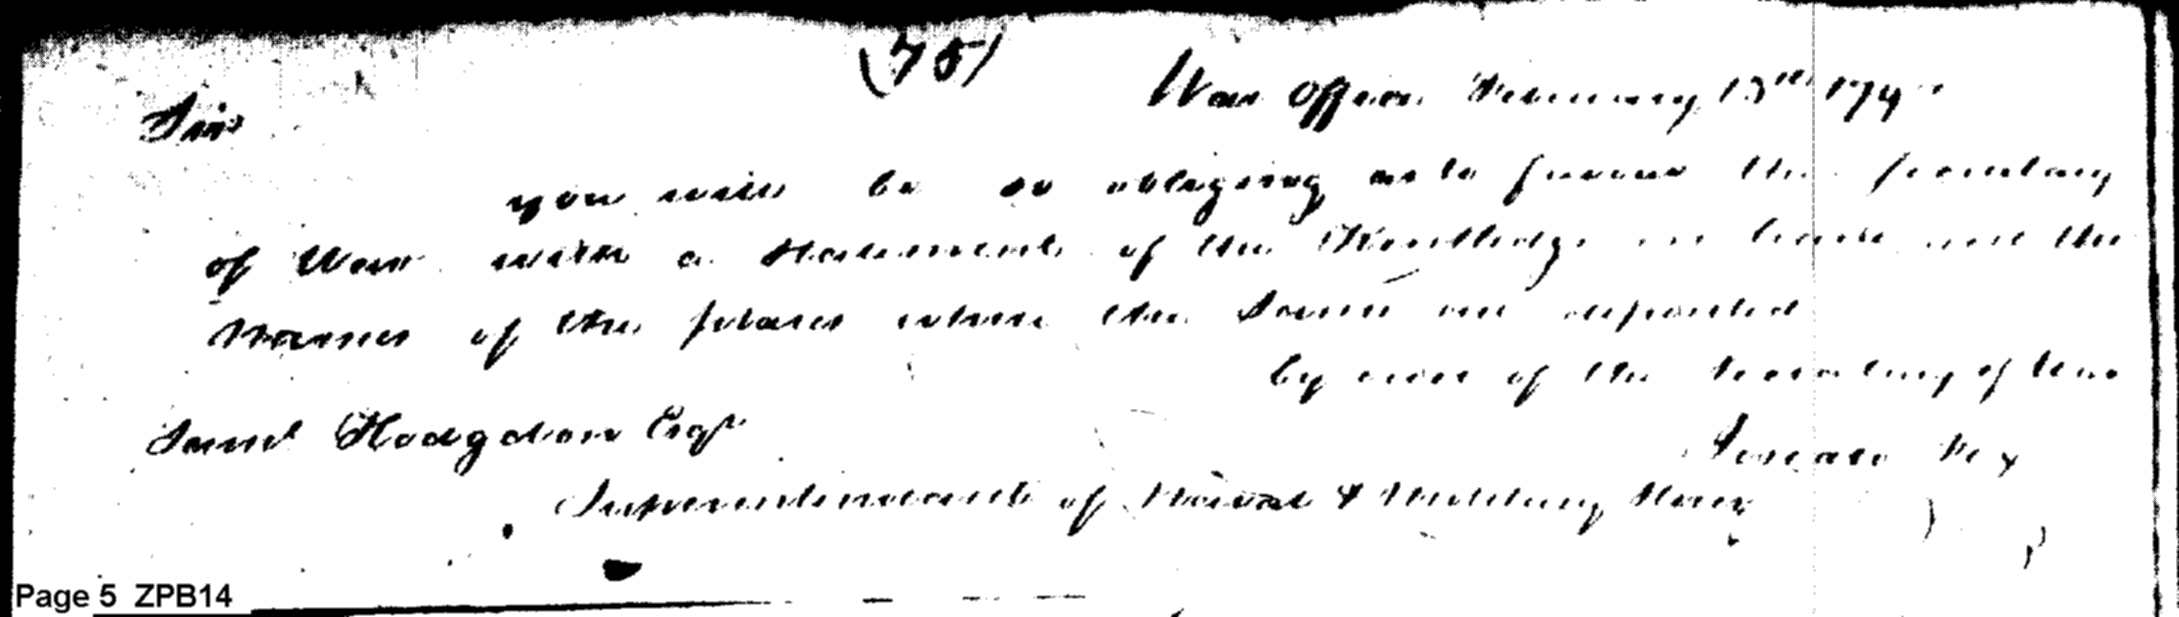 (75)
War Office February 13th 179
Sir
you will be so obliging as to favour the secretary
of War with a statement of the Kentledge on hand and the
Names of the places where the Same are deposited
by order of the Secretary of War
Saml Hodgdon Esqr
Superintendant of Naval & Military Stores
Page 5 ZPB14